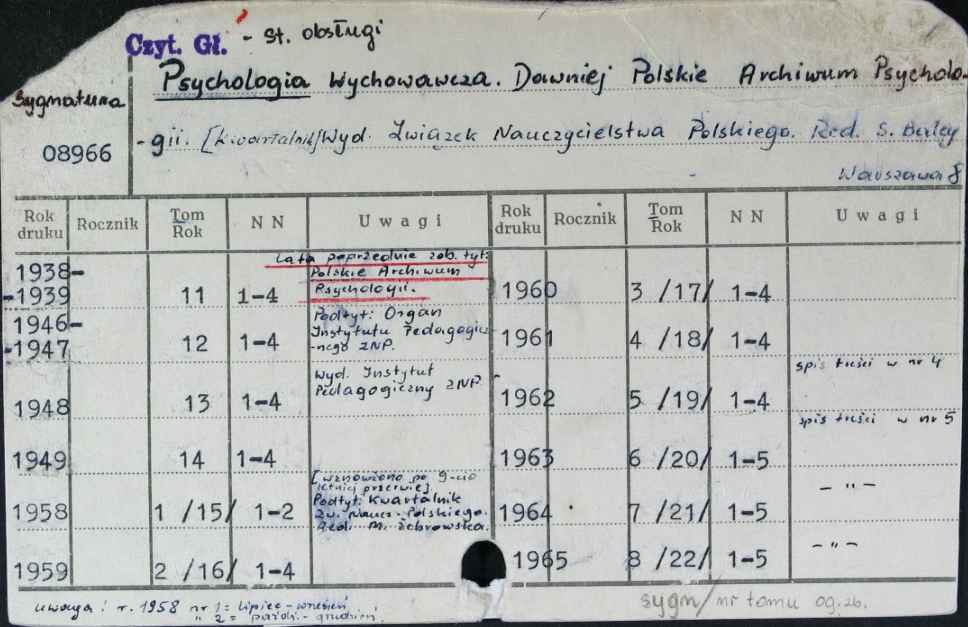 Czyt. Gł. - St. obsługi
Psychologia Wychowawcza. Dawniej Polskie Archiwum Psycholo-
Sygnatura
08966
-gii. [kwartalnik] Wyd. Związek Nauczycielstwa Polskiego. Red. S. Baley
Warszawa 8
Rok druku Rocznik Tom Rok NN Uwagi Rok druku Rocznik Tom Rok NN Uwagi
Lata poprzednie zob. tyt:
Polskie Archiwum
Psychologii.
1938-
-1939 11 1-4
1946-
-1947 12 1-4
Podtyt: Organ
Instytutu Pedagogicz-
-nego ZNP.
1948 13 1-4
Wyd. Instytut
Pedagogiczny ZNP.
1949 14 1-4
1958 1 /15/ 1-2
[wznowiono po 9-cio
letniej przerwie]
Podtyt: Kwartalnik
Zw. Naucz. Polskiego.
Red. M. Żebrowska.
1959 2 /16/ 1-4
1960 3 /17/ 1-4
1961 4 /18/ 1-4
1962 5 /19/ 1-4
spis treści w nr 4
1963 6 /20/ 1-5
spis treści w nr 5
1964 7 /21/ 1-5
- " -
1965 8 /22/ 1-5
- " -
uwaga: r. 1958 nr 1 = lipiec - wrzesień
" 2 = paźdz. - grudzień.
sygn/ nr tomu og. zb.